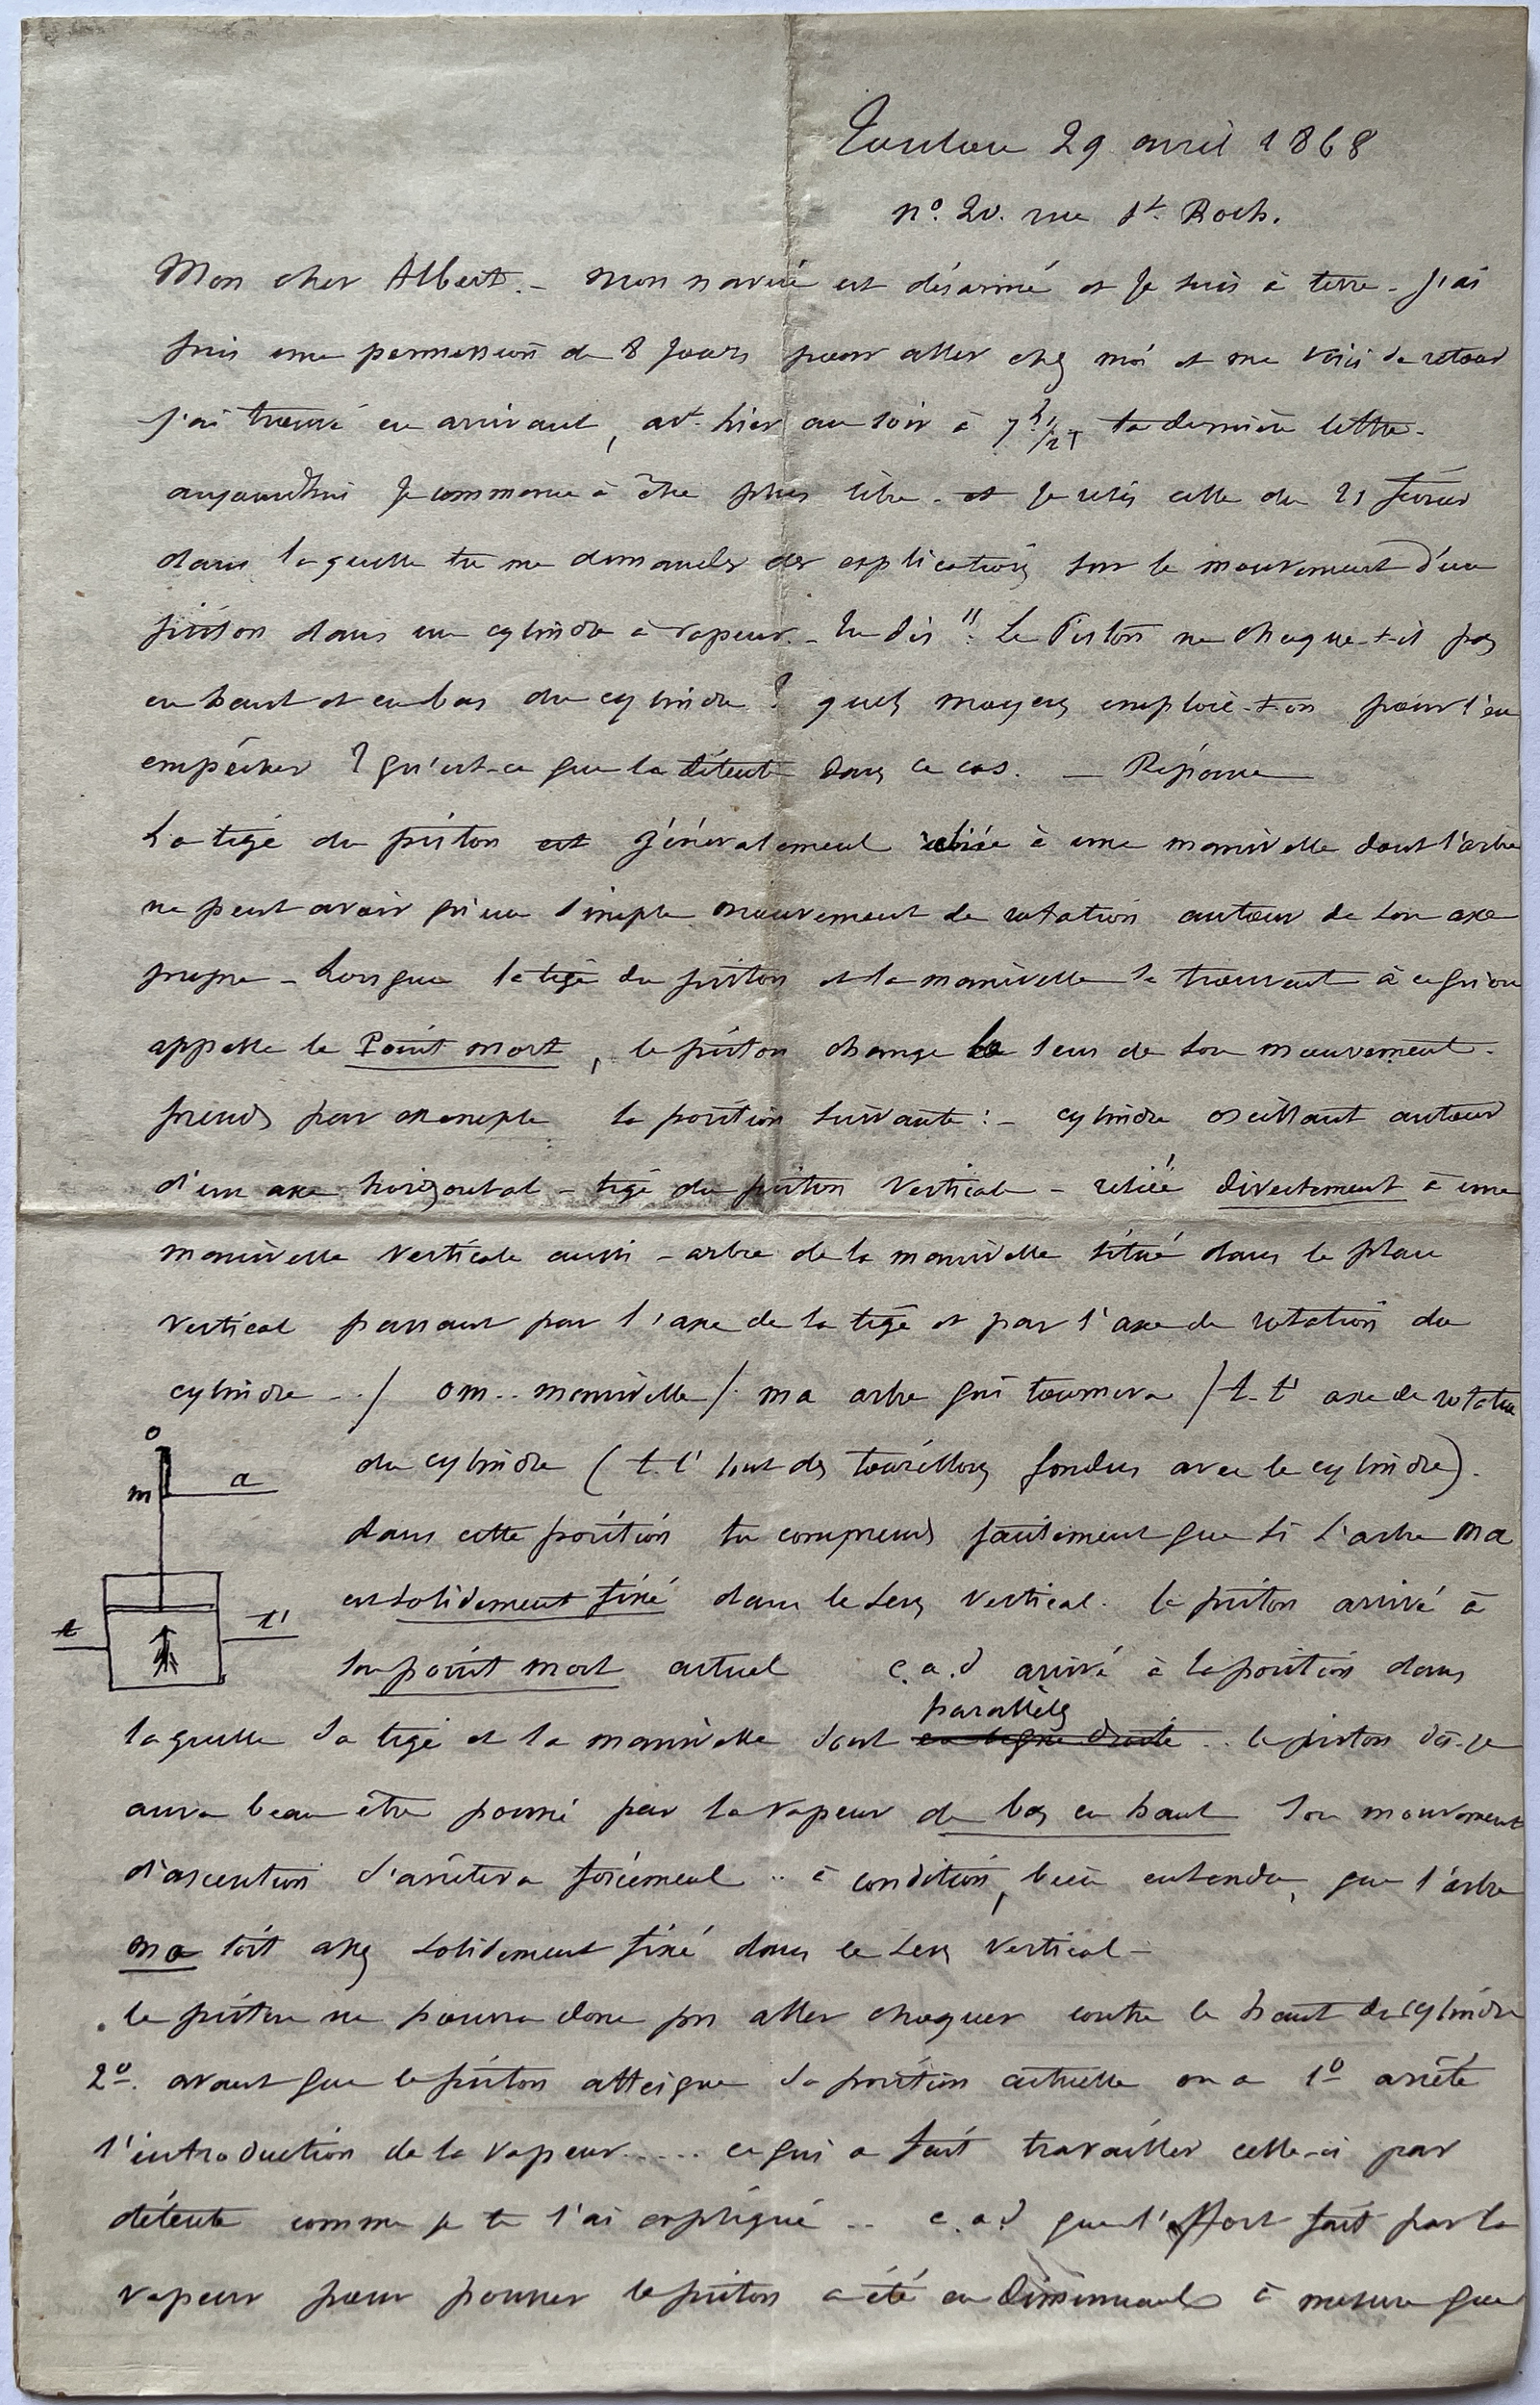 Toulon 29 avril 1868
n° 20. rue St. Roch.
Mon cher Albert. - Mon navire est désarmé et je suis à terre - J'ai
pris une permission de 8 jours pour aller chez moi et me voici de retour
j'ai trouvé en arrivant, avt. hier au soir à 7h 1/2, ta dernière lettre.
aujourd'hui je commence à être plus libre - et je relis celle du 21 février
dans laquelle tu me demandes des explications sur le mouvement d'un
piston dans un cylindre à vapeur. - Tu dis ": Le Piston ne choque-t-il pas
en haut et en bas du cylindre ? quels moyens emploie-t-on pour l'en
empêcher ? qu'est-ce que la détente dans ce cas. — Réponse —
La tige du piston est généralement reliée à une manivelle dont l'arbre
ne peut avoir qu'un simple mouvement de rotation autour de son axe
propre - Lorsque la tige du piston et la manivelle se trouvent à ce qu'on
appelle le Point mort, le piston change le sens de son mouvement.
prends par exemple la position suivante : - cylindre oscillant autour
d'un axe horizontal - tige du piston verticale - reliée directement à une
manivelle verticale aussi - arbre de la manivelle situé dans le plan
vertical passant par l'axe de la tige et par l'axe de rotation du
cylindre - . / om .. manivelle / . ma arbre qui tournera / t-t' axe de rotation
du cylindre ( t.t' sont des tourillons fondus avec le cylindre).
o
m a
t t'
dans cette position tu comprends facilement que si l'arbre ma
est solidement fixé dans le sens vertical. le piston arrivé à
son point mort actuel c.a.d arrivé à la position dans
parallèles
laquelle sa tige et la manivelle sont en ligne droite .. le piston dis-je
aura beau être poussé par la vapeur de bas en haut son mouvement
d'ascention s'arrêtera forcément .. à condition, bien entendu, que l'arbre
ma soit assez solidement fixé dans le sens vertical -
. le piston ne pourra donc pas aller choquer contre le haut du cylindre
2°. avant que le piston atteigne sa position actuelle on a 1° arrêté
l'introduction de la vapeur..... ce qui a fait travailler celle-ci par
détente comme je te l'ai expliqué .. c.a.d que l'effort fait par la
vapeur pour pousser le piston a été en diminuant à mesure que